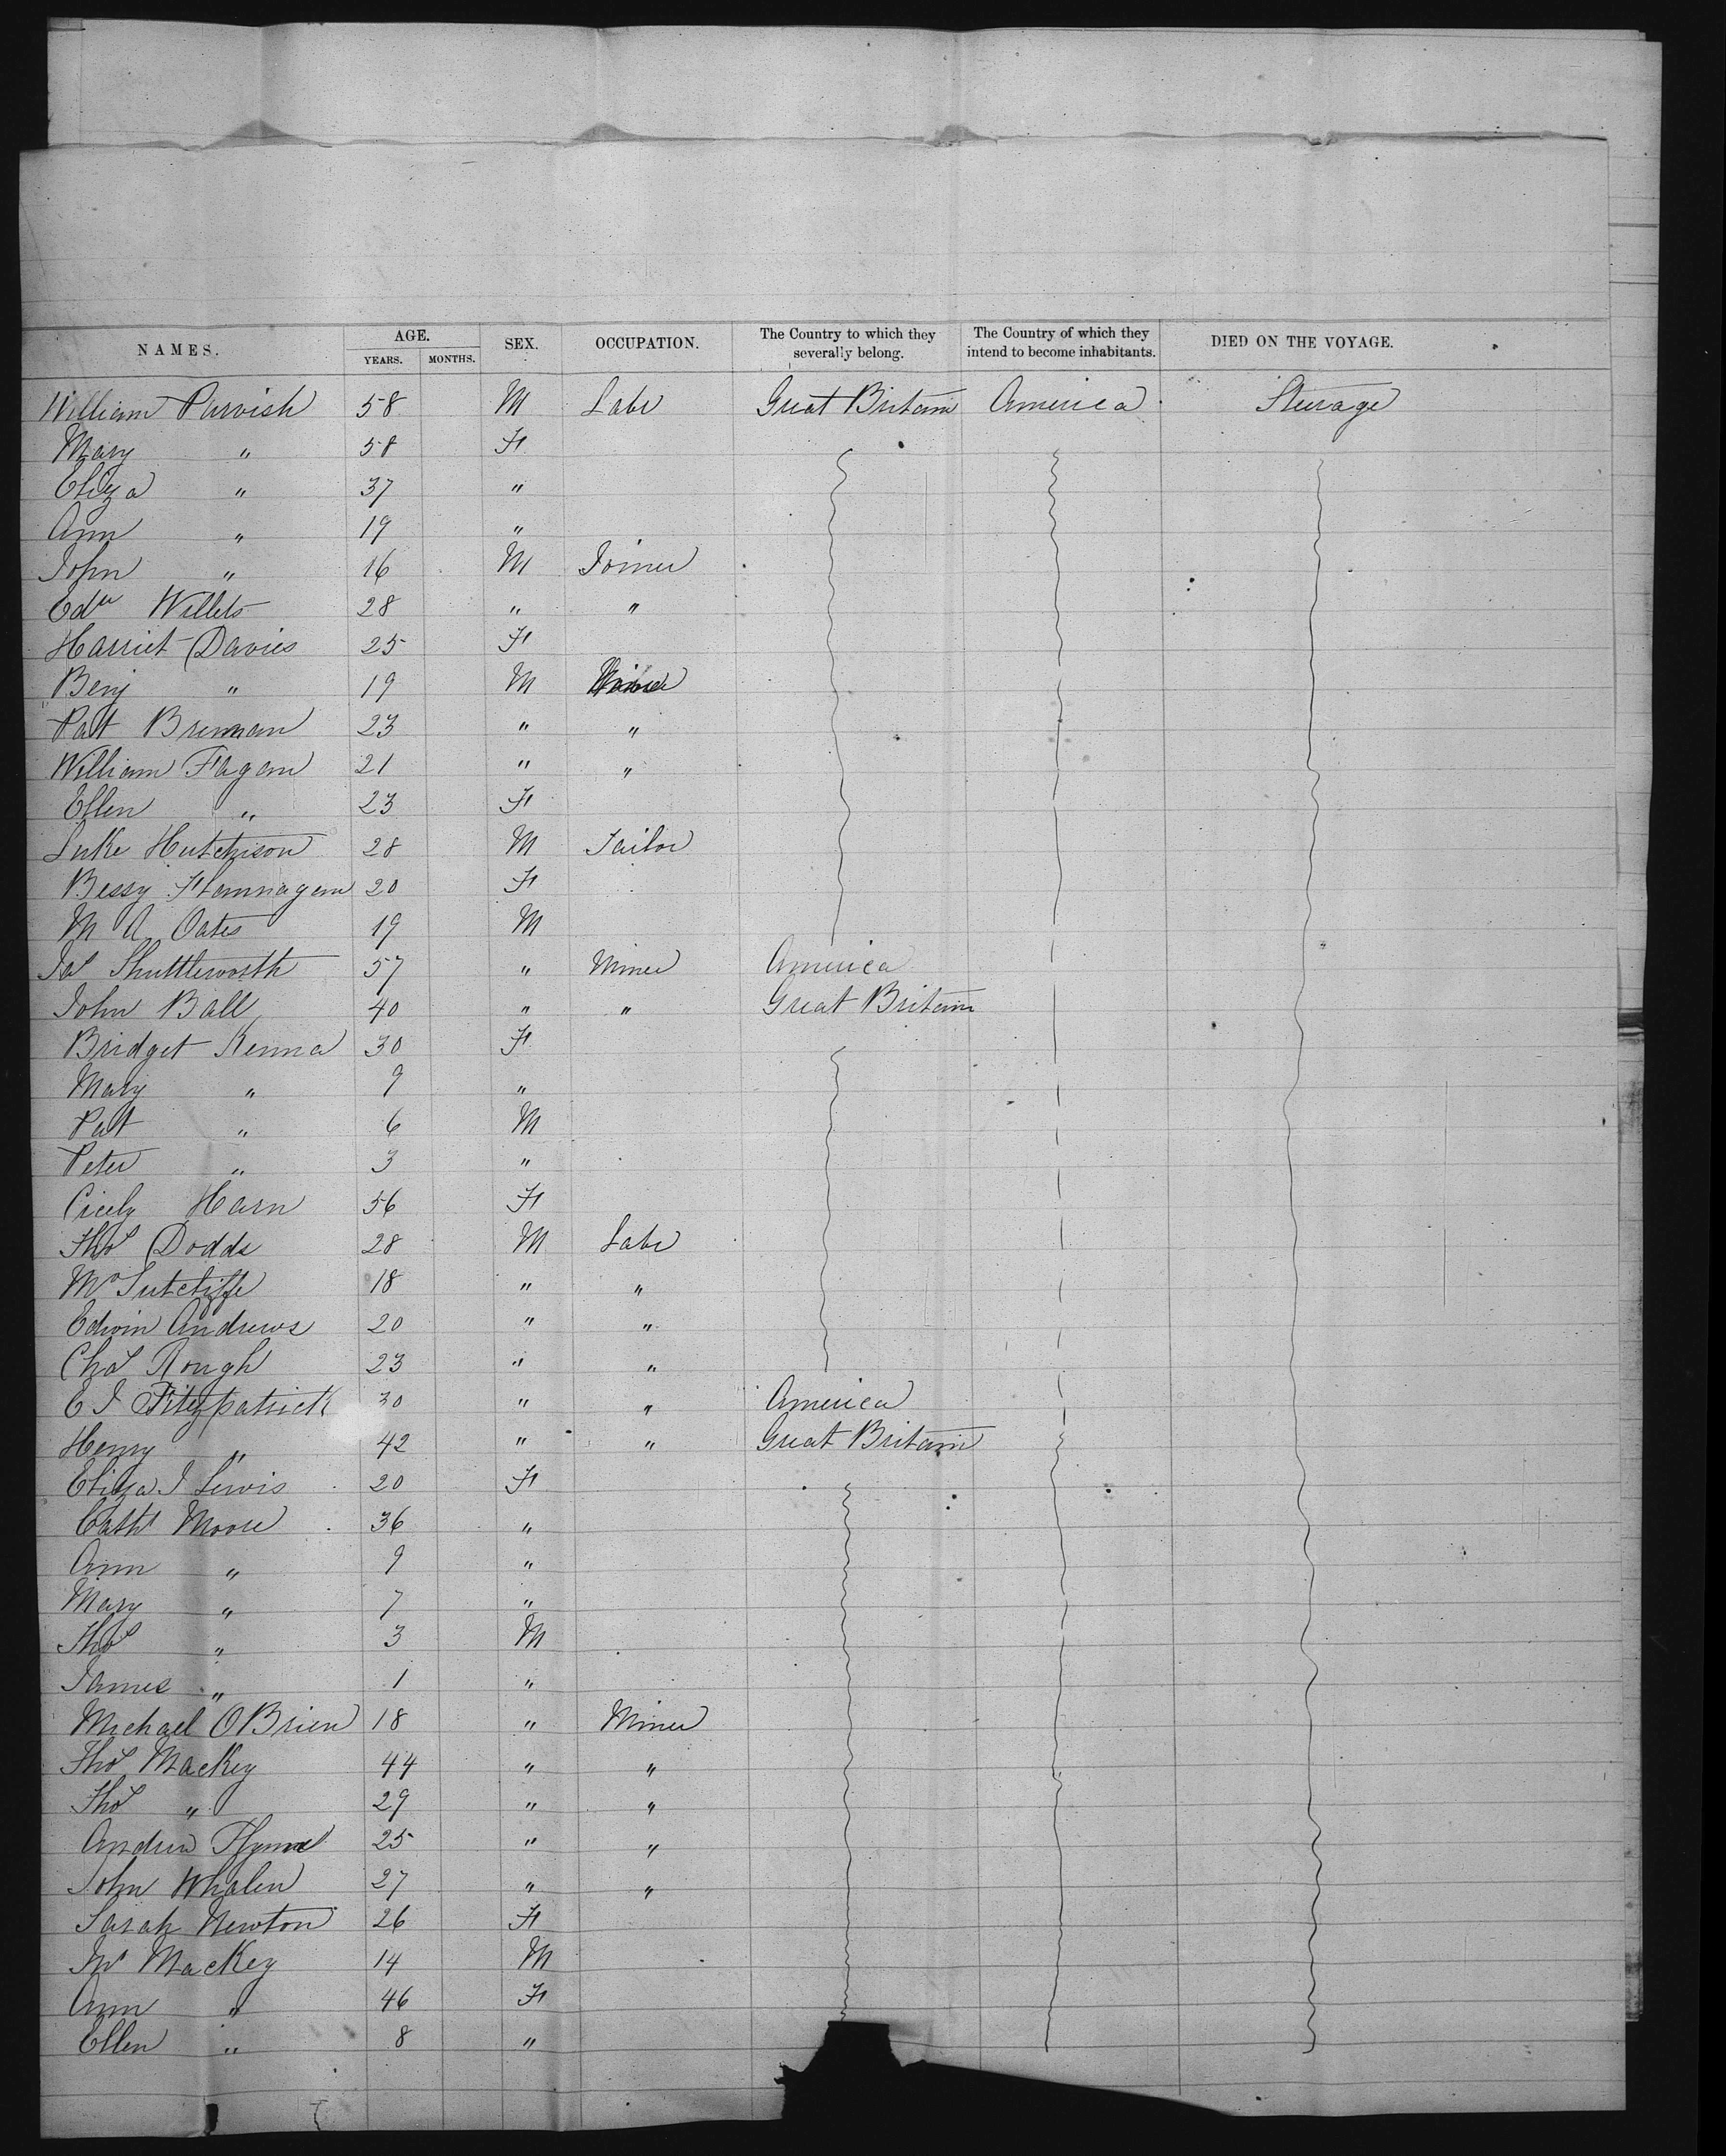 NAMES. AGE. SEX. OCCUPATION. The Country to which they severally belong. The Country of which they intend to become inhabitants. DIED ON THE VOYAGE.
YEARS. MONTHS.
William Parvish 58 M Labr Great Britain America Steerage
Mary " 58 F
Eliza " 37 "
Ann " 19 "
John " 16 M Joiner
Edw Willets 28 " "
Harriet Davies 25 F
Benj " 19 M
Pat Brennan 23 " "
William Fagan 21 " "
Ellen " 23 F
Luke Hutchison 28 M Tailor
Bessy Flannagan 20 F
M A Oates 19 M
Jas Shuttleworth 57 " Miner America
John Ball 40 " " Great Britain
Bridget Kenna 30 F
Mary " 9 "
Pat " 6 M
Peter " 3 "
Cicely Harn 56 F
Thos Dodds 28 M Labr
Sutcliffe 18 " "
Edwin Andrews 20 " "
Chas Rough 23 " "
E J Fitzpatrick 30 " " America
Henry " 42 " " Great Britain
Eliza J Lewis 20 F
Cath Moore 36 "
Ann " 9 "
Mary " 7 "
Thos " 3 M
James " 1 "
Michael OBrien 18 " Miner
Thos Mackey 44 " "
Thos " 29 " "
Andrew 25 " "
John Whalen 27 " "
Sarah Newton 26 F
Mackey 14 M
Ann " 46 F
Ellen " 8 "